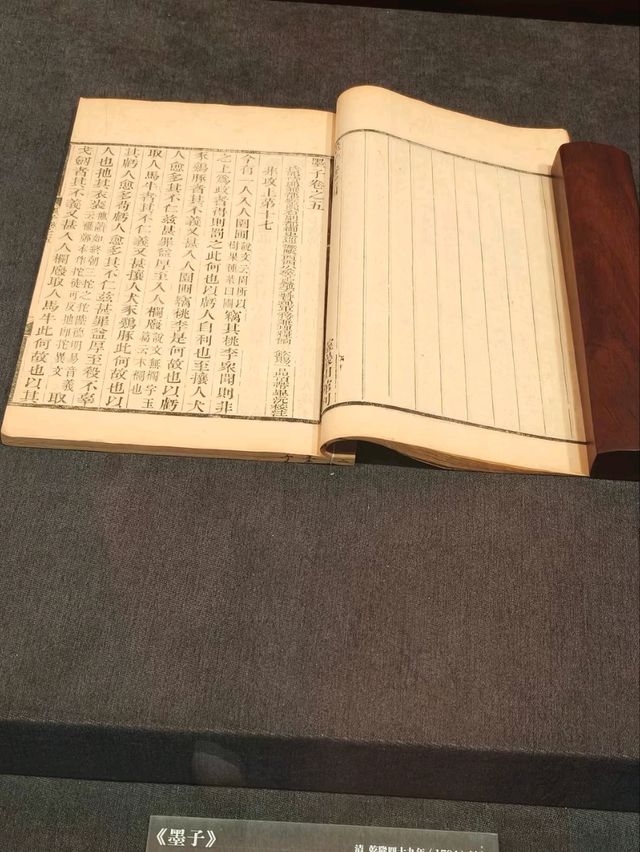 墨子卷之五
欽賜一品頂帶畢沅校注
非攻上第十七
今有一人入人園圃說文云園所以樹果種菜曰圃竊其桃李眾聞則非
之上爲政者得則罰之此何也以虧人自利也至攘人犬
豕雞豚者其不義又甚入人園圃竊桃李是何故也以虧
人愈多其不仁茲甚罪益厚至入人欄廄說文無欄字玉篇云木欄也
取人馬牛者其不仁義又甚攘人犬豕雞豚此何故也以
其虧人愈多苟虧人愈多其不仁茲甚罪益厚至殺不辜
人也扡其衣裘取
戈劒者其不義又甚入人欄廄取人馬牛此何故也以其
《墨子》
清 乾隆四十九年